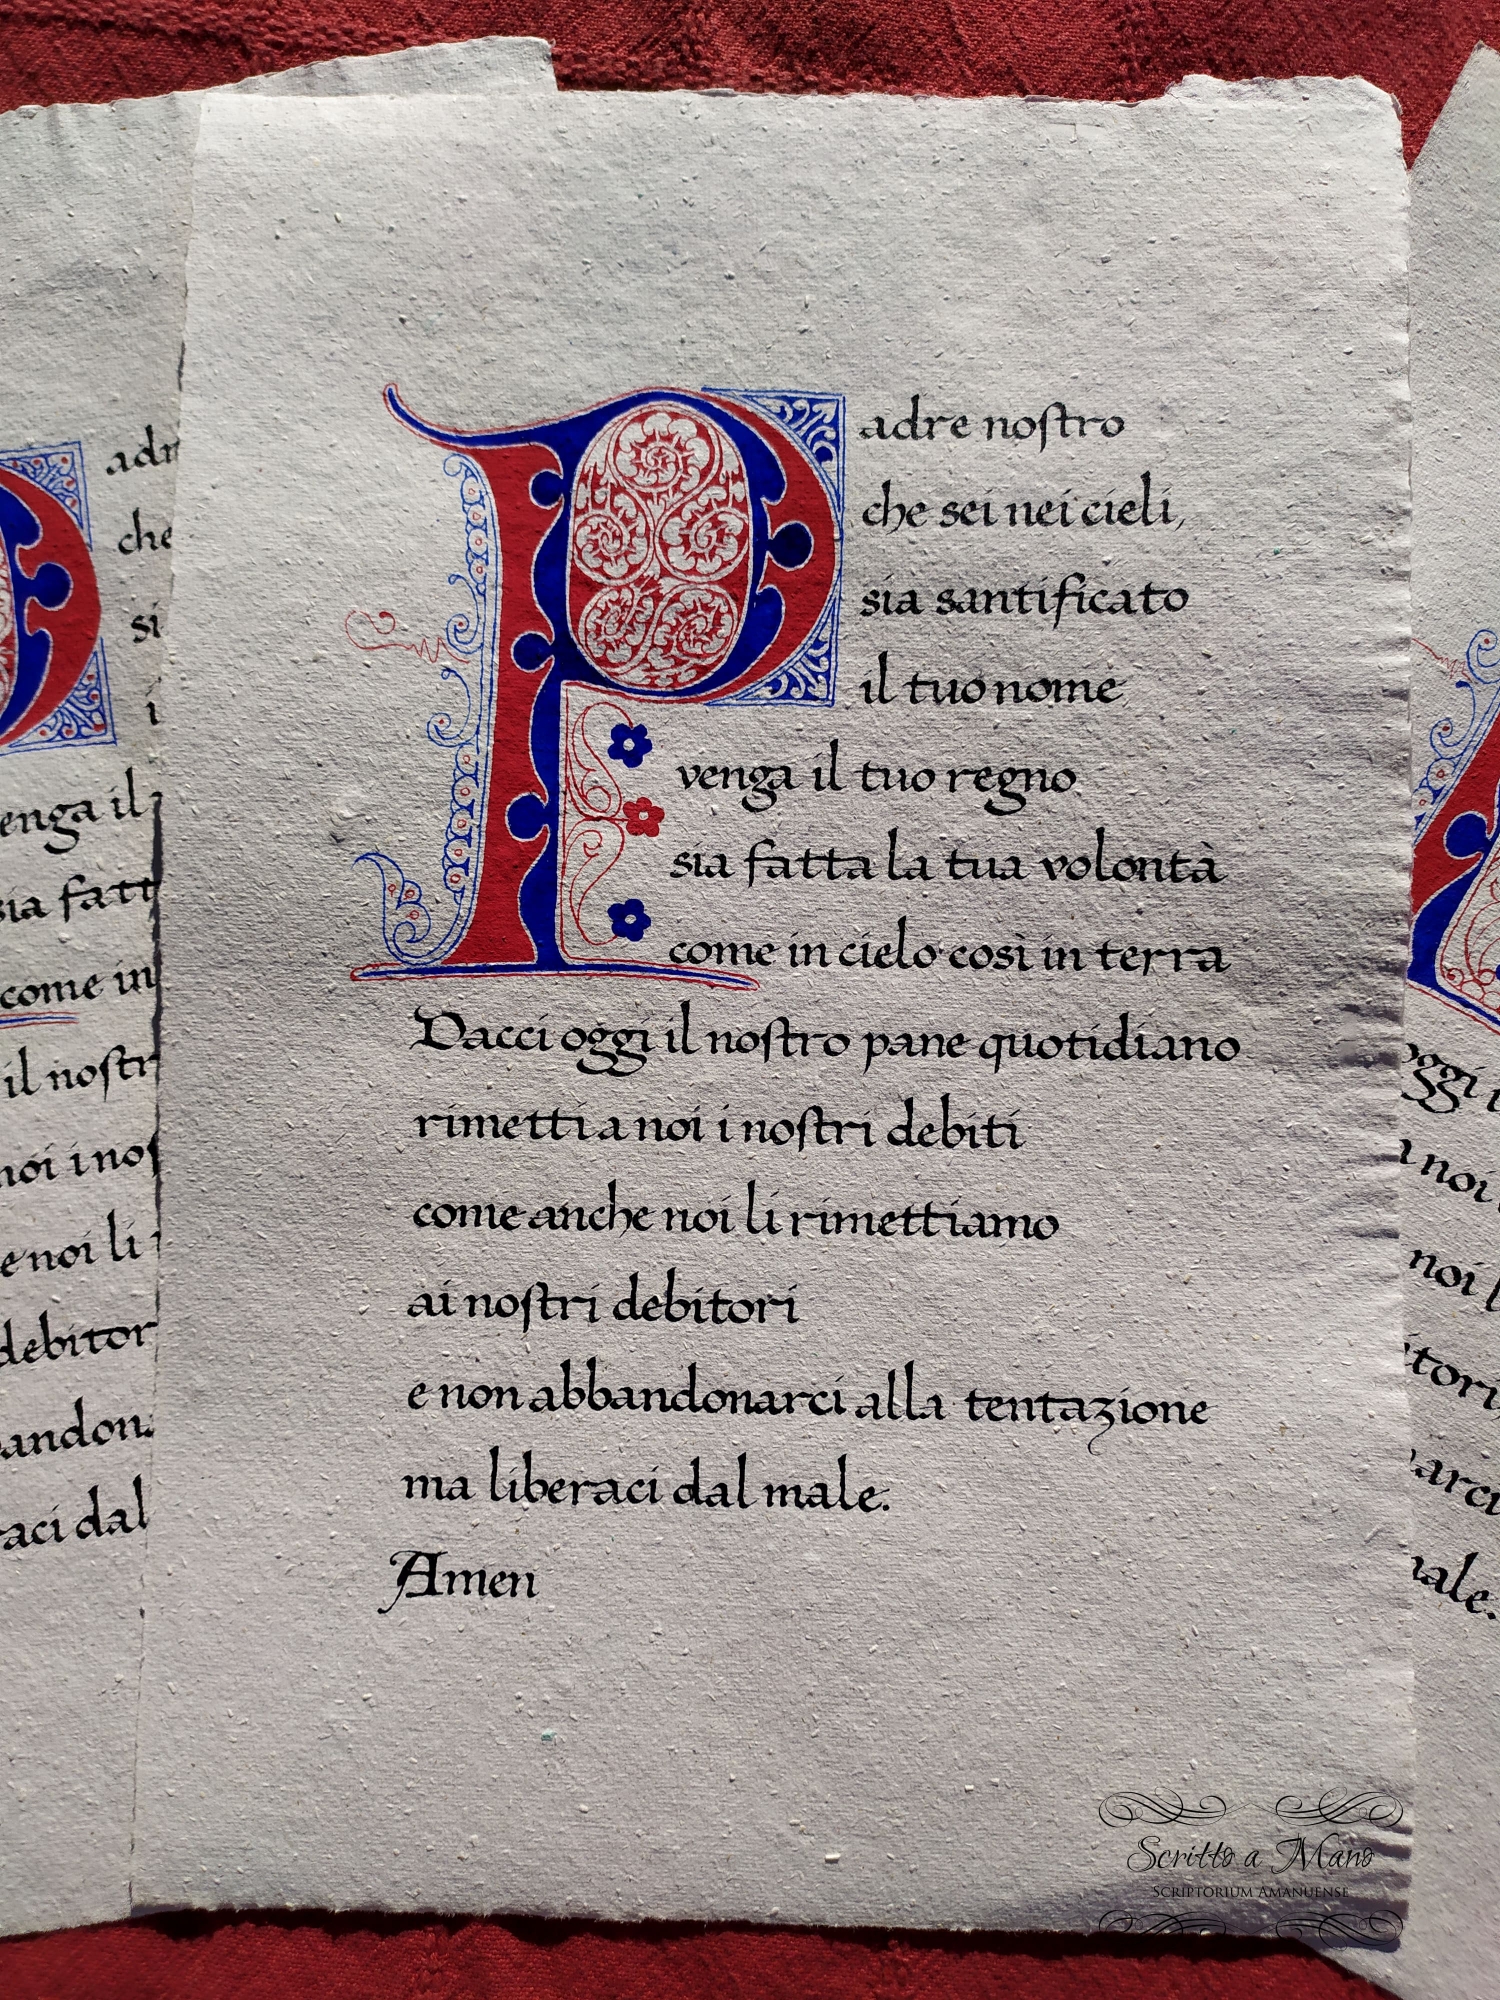 Padre nostro
che sei nei cieli,
sia santificato
il tuo nome
venga il tuo regno
sia fatta la tua volontà
come in cielo così in terra
Dacci oggi il nostro pane quotidiano
rimetti a noi i nostri debiti
come anche noi li rimettiamo
ai nostri debitori
e non abbandonarci alla tentazione
ma liberaci dal male.
Amen
adr
che
si
i
enga il
sia fatt
come in
il nostr
noi i nos
e noi li
debitor
andon
aci dal
oggi i
noi
noi l
itori
arci
ale.
Scritto a Mano
Scriptorium Amanuense